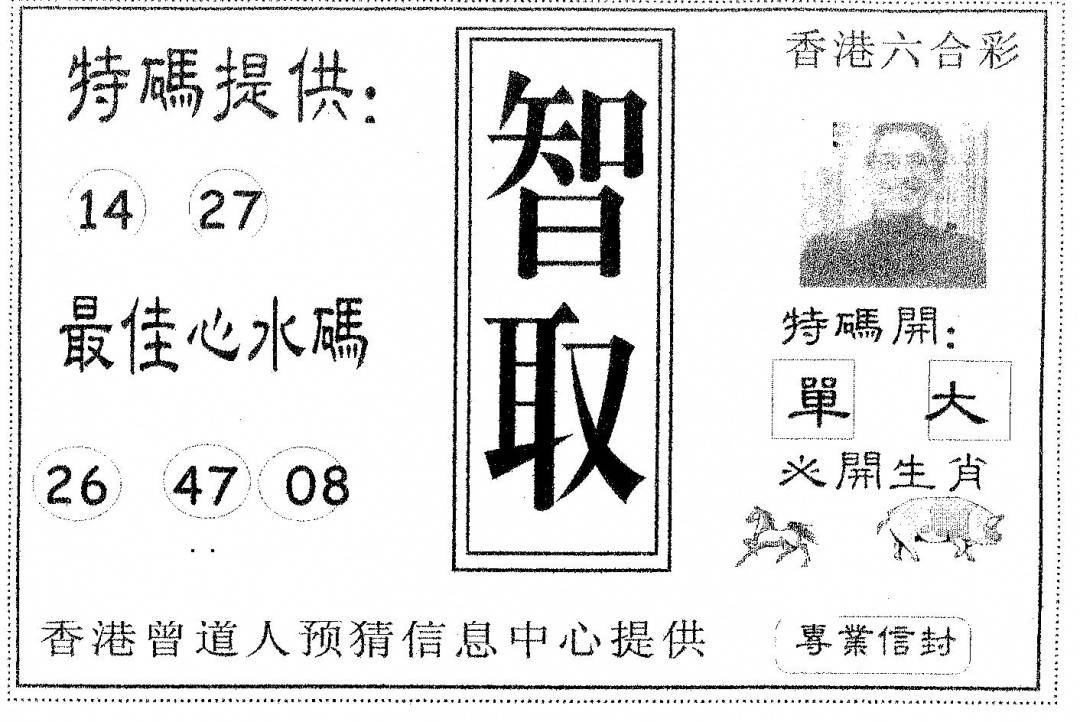 特碼提供：
14 27
最佳心水碼
26 47 08
智取
香港六合彩
特碼開：
單 大
必開生肖
香港曾道人预猜信息中心提供
專業信封